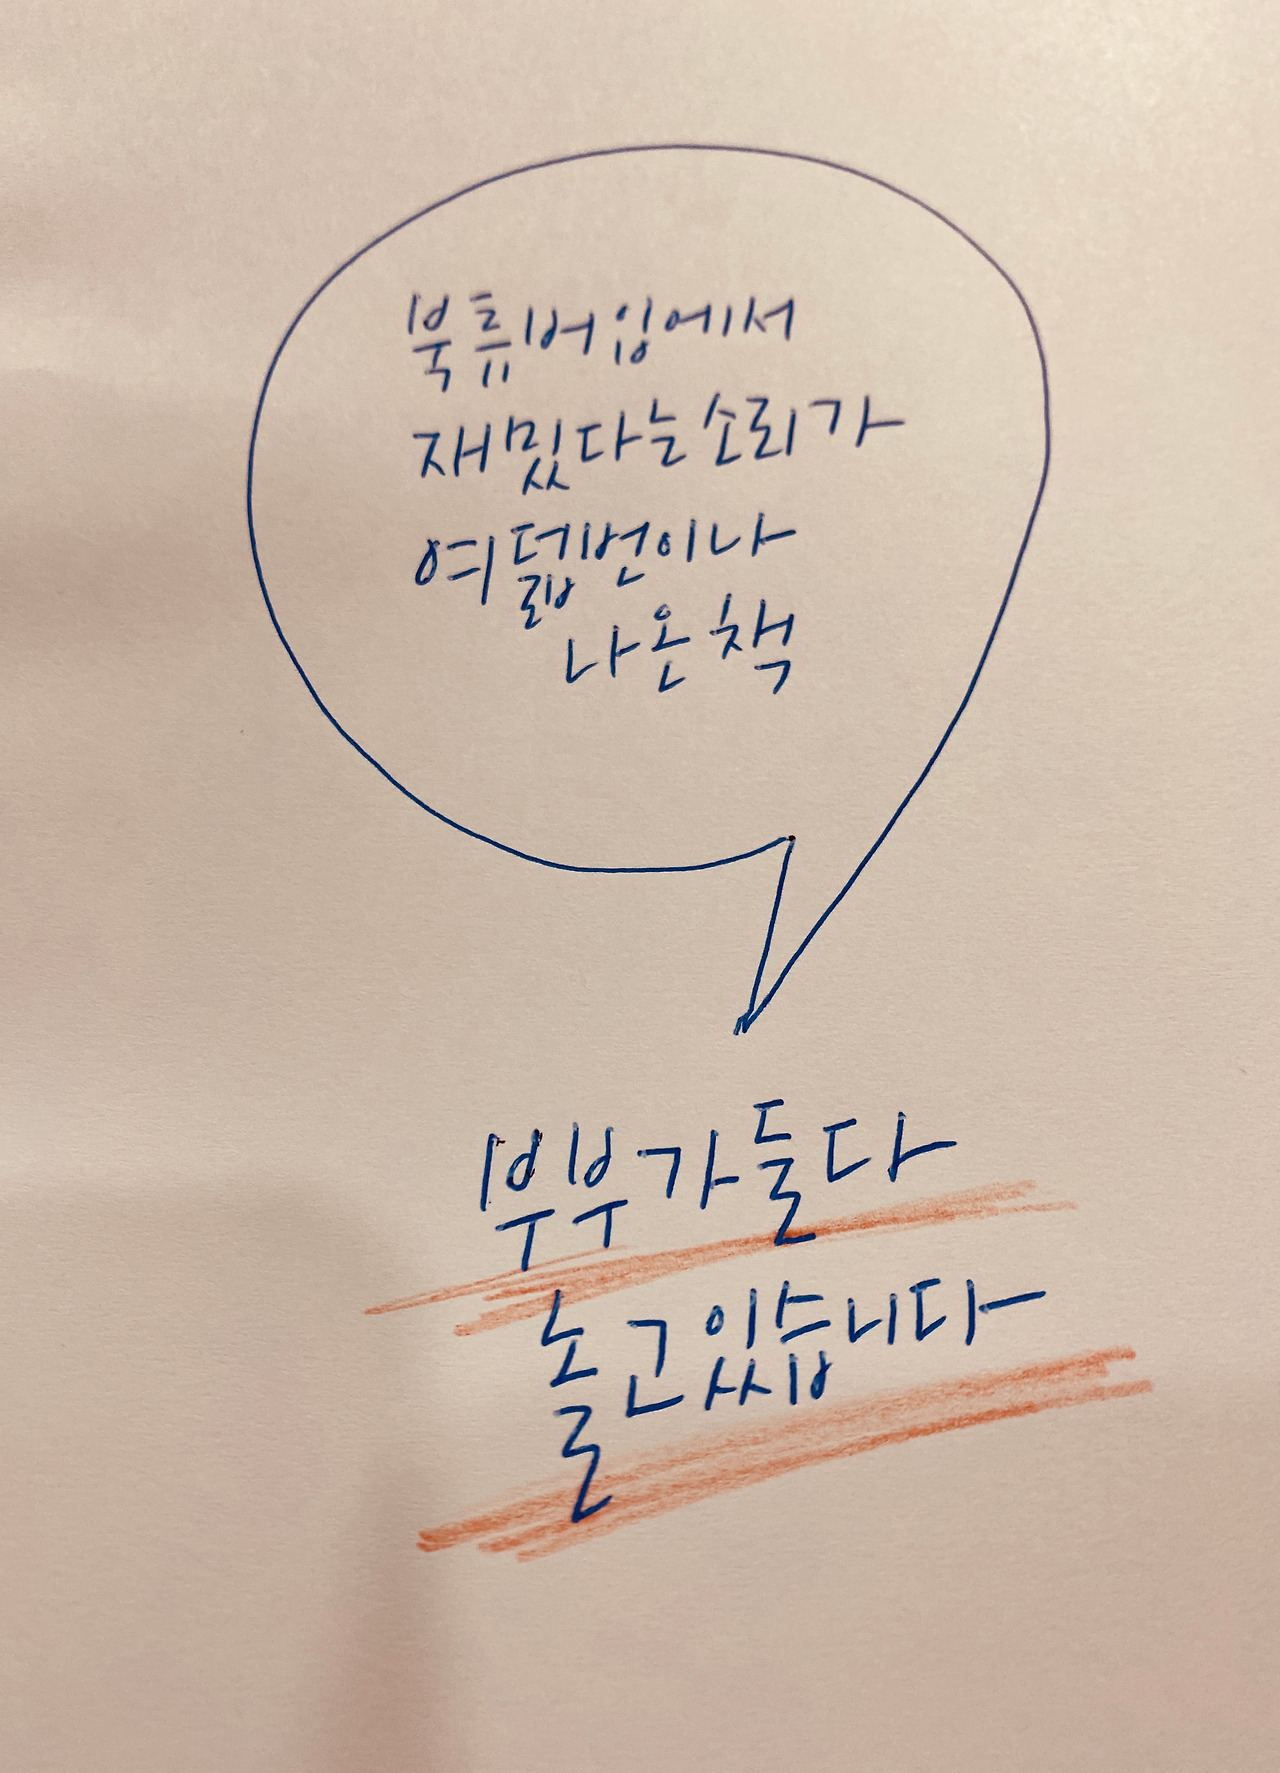 북튜버입에서
재밌다는소리가
여덟번이나
나온책
부부가둘다
놀고있습니다